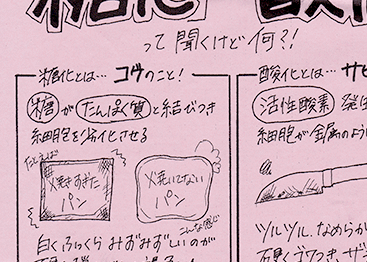 糖化 酸化
って聞くけど何?!
糖化とは… コゲのこと!
糖がたんぱく質と結びつき
細胞を劣化させる
たとえば
焼きすぎた
パン
焼いてない
パン
こんな感じ
白くふっくら みずみずしいのが
酸化とは… サビ
活性酸素 発生
細胞が金属のように
ツルツル、なめらか